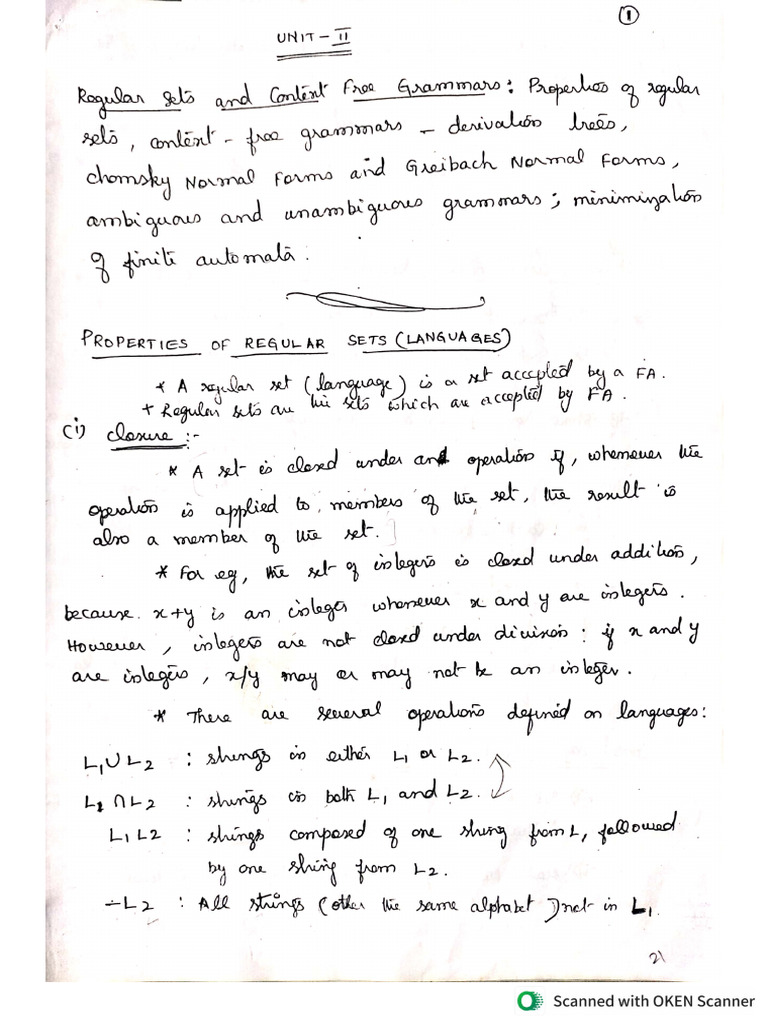 1
UNIT - II
Regular Sets and Context Free Grammars: Properties of regular
sets, context - free grammars - derivation trees,
chomsky Normal Forms and Greibach Normal Forms,
ambiguous and unambiguous grammars; minimization
of finite automata.
PROPERTIES OF REGULAR SETS (LANGUAGES)
* A regular set (language) is a set accepted by a FA.
* Regular sets are the sets which are accepted by FA.
(i) closure :-
* A set is closed under an operation if, whenever the
operation is applied to members of the set, the result is
also a member of the set.
* For eg, the set of integers is closed under addition,
because x+y is an integer whenever x and y are integers.
However, integers are not closed under division: if x and y
are integers, x/y may or may not be an integer.
* There are several operations defined on languages:
L1 ∪ L2 : strings in either L1 or L2.
L1 ∩ L2 : strings in both L1 and L2.
L1 L2 : strings composed of one string from L1 followed
by one string from L2.
-L2 : All strings (other the same alphabet) not in L1.
21
Scanned with OKEN Scanner